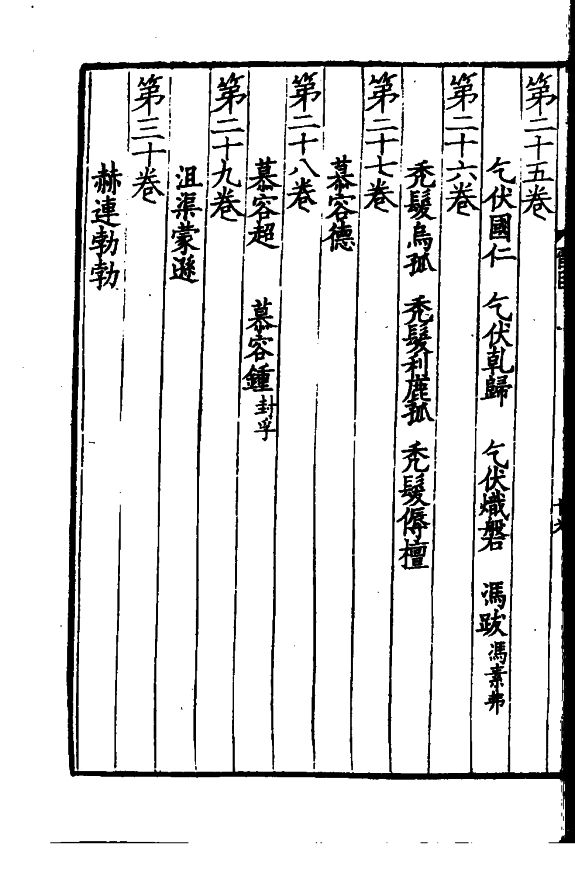 第二十五卷
乞伏國仁 乞伏乹歸 乞伏熾磐 馮跋 馮素弗
第二十六卷
禿髮烏孤 禿髮利鹿孤 禿髮傉檀
第二十七卷
慕容德
第二十八卷
慕容超 慕容鍾 封孚
第二十九卷
沮渠蒙遜
第三十卷
赫連勃勃